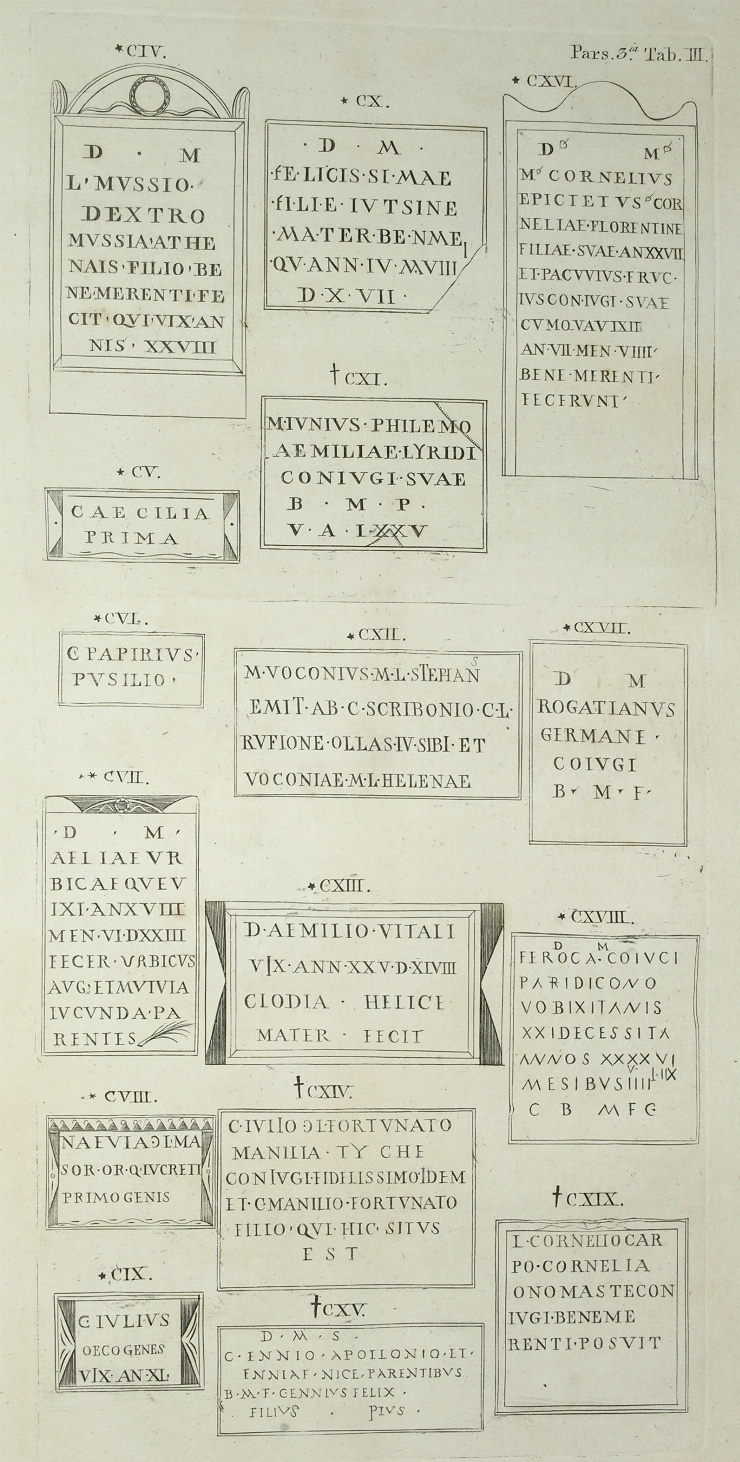 Pars. 3.ia Tab. III.
*CIV.
D · M
L' MVSSIO·
DEXTRO
MVSSIA'ATHE
NAIS·FILIO·BE
NE·MERENTI·FE
CIT·QVI·VIX'AN
NIS' XXVIII
*CV.
CAECILIA
PRIMA
*CVI.
C PAPIRIVS'
PVSILIO'
*CVII.
'D ' M '
AELIAE VR
BICAE QVE V
IXI·ANXVIII
MEN·VI·DXXIII
FECER·VRBICVS
AVG·ET·MVTVIA
IVCVNDA·PA
RENTES
*CVIII.
NAEVIA Ɔ L·MA
SOR·OR·Q·LVCRETI
PRIMOGENIS
*CIX.
C IVLIVS
OECOGENES
VIX·AN·XL·
*CX.
· D · M ·
·FE·LICIS·SI·MAE
·FI·LI·E·IVTSINE
·MA·TER·BE·NME
·QV·ANN·IV·MVIII
D·X·VII·
†CXI.
M·IVNIVS·PHILEMO
AEMILIAE·LYRIDI
CONIVGI·SVAE
B · M · P ·
V · A · LXXV
*CXII.
M·VOCONIVS·M·L·STEPIANS
EMIT·AB·C·SCRIBONIO·C·L·
RVFIONE·OLLAS·IV·SIBI·ET
VOCONIAE·M·L·HELENAE
*CXIII.
D·AEMILIO·VITALI
VIX·ANN·XXV·D·XLVIII
CLODIA · HELICE
MATER · FECIT
†CXIV.
C·IVLIO Ɔ L·FORTVNATO
MANILIA·TYCHE
CONIVGI·FIDELISSIMO·IDEM
ET·C·MANILIO·FORTVNATO
FILIO'QVI·HIC·SITVS
EST
†CXV.
D·M·S·
C·ENNIO·APOLLONIO·ET·
ENNIAE·NICE·PARENTIBVS
B·M·F·C·ENNIVS FELIX·
FILIVS · PIVS·
*CXVI.
D M
M CORNELIVS
EPICTETVS COR
NELIAE·FLORENTINE
FILIAE·SVAE·ANXXVII
ET·PACVVIVS·FRVC·
IVS CON·IVGI·SVAE
CVMQVAVIXIT
AN·VII·MEN·VIIII'
BENE·MERENTI·
FECERVNT'
*CXVII.
D M
ROGATIANVS
GERMANE·
COIVGI
B· M· F·
*CXVIII.
D M
FEROCA·COIVCI
PARIDICONO
VOBIXITANIS
XXIDECESSITA
ANNOS XXXXVI
MESIBVSIIII
C B MFG
†CXIX.
L·CORNELIO CAR
PO·CORNELIA
ONOMASTECON
IVGI·BENEME
RENTI·POSVIT